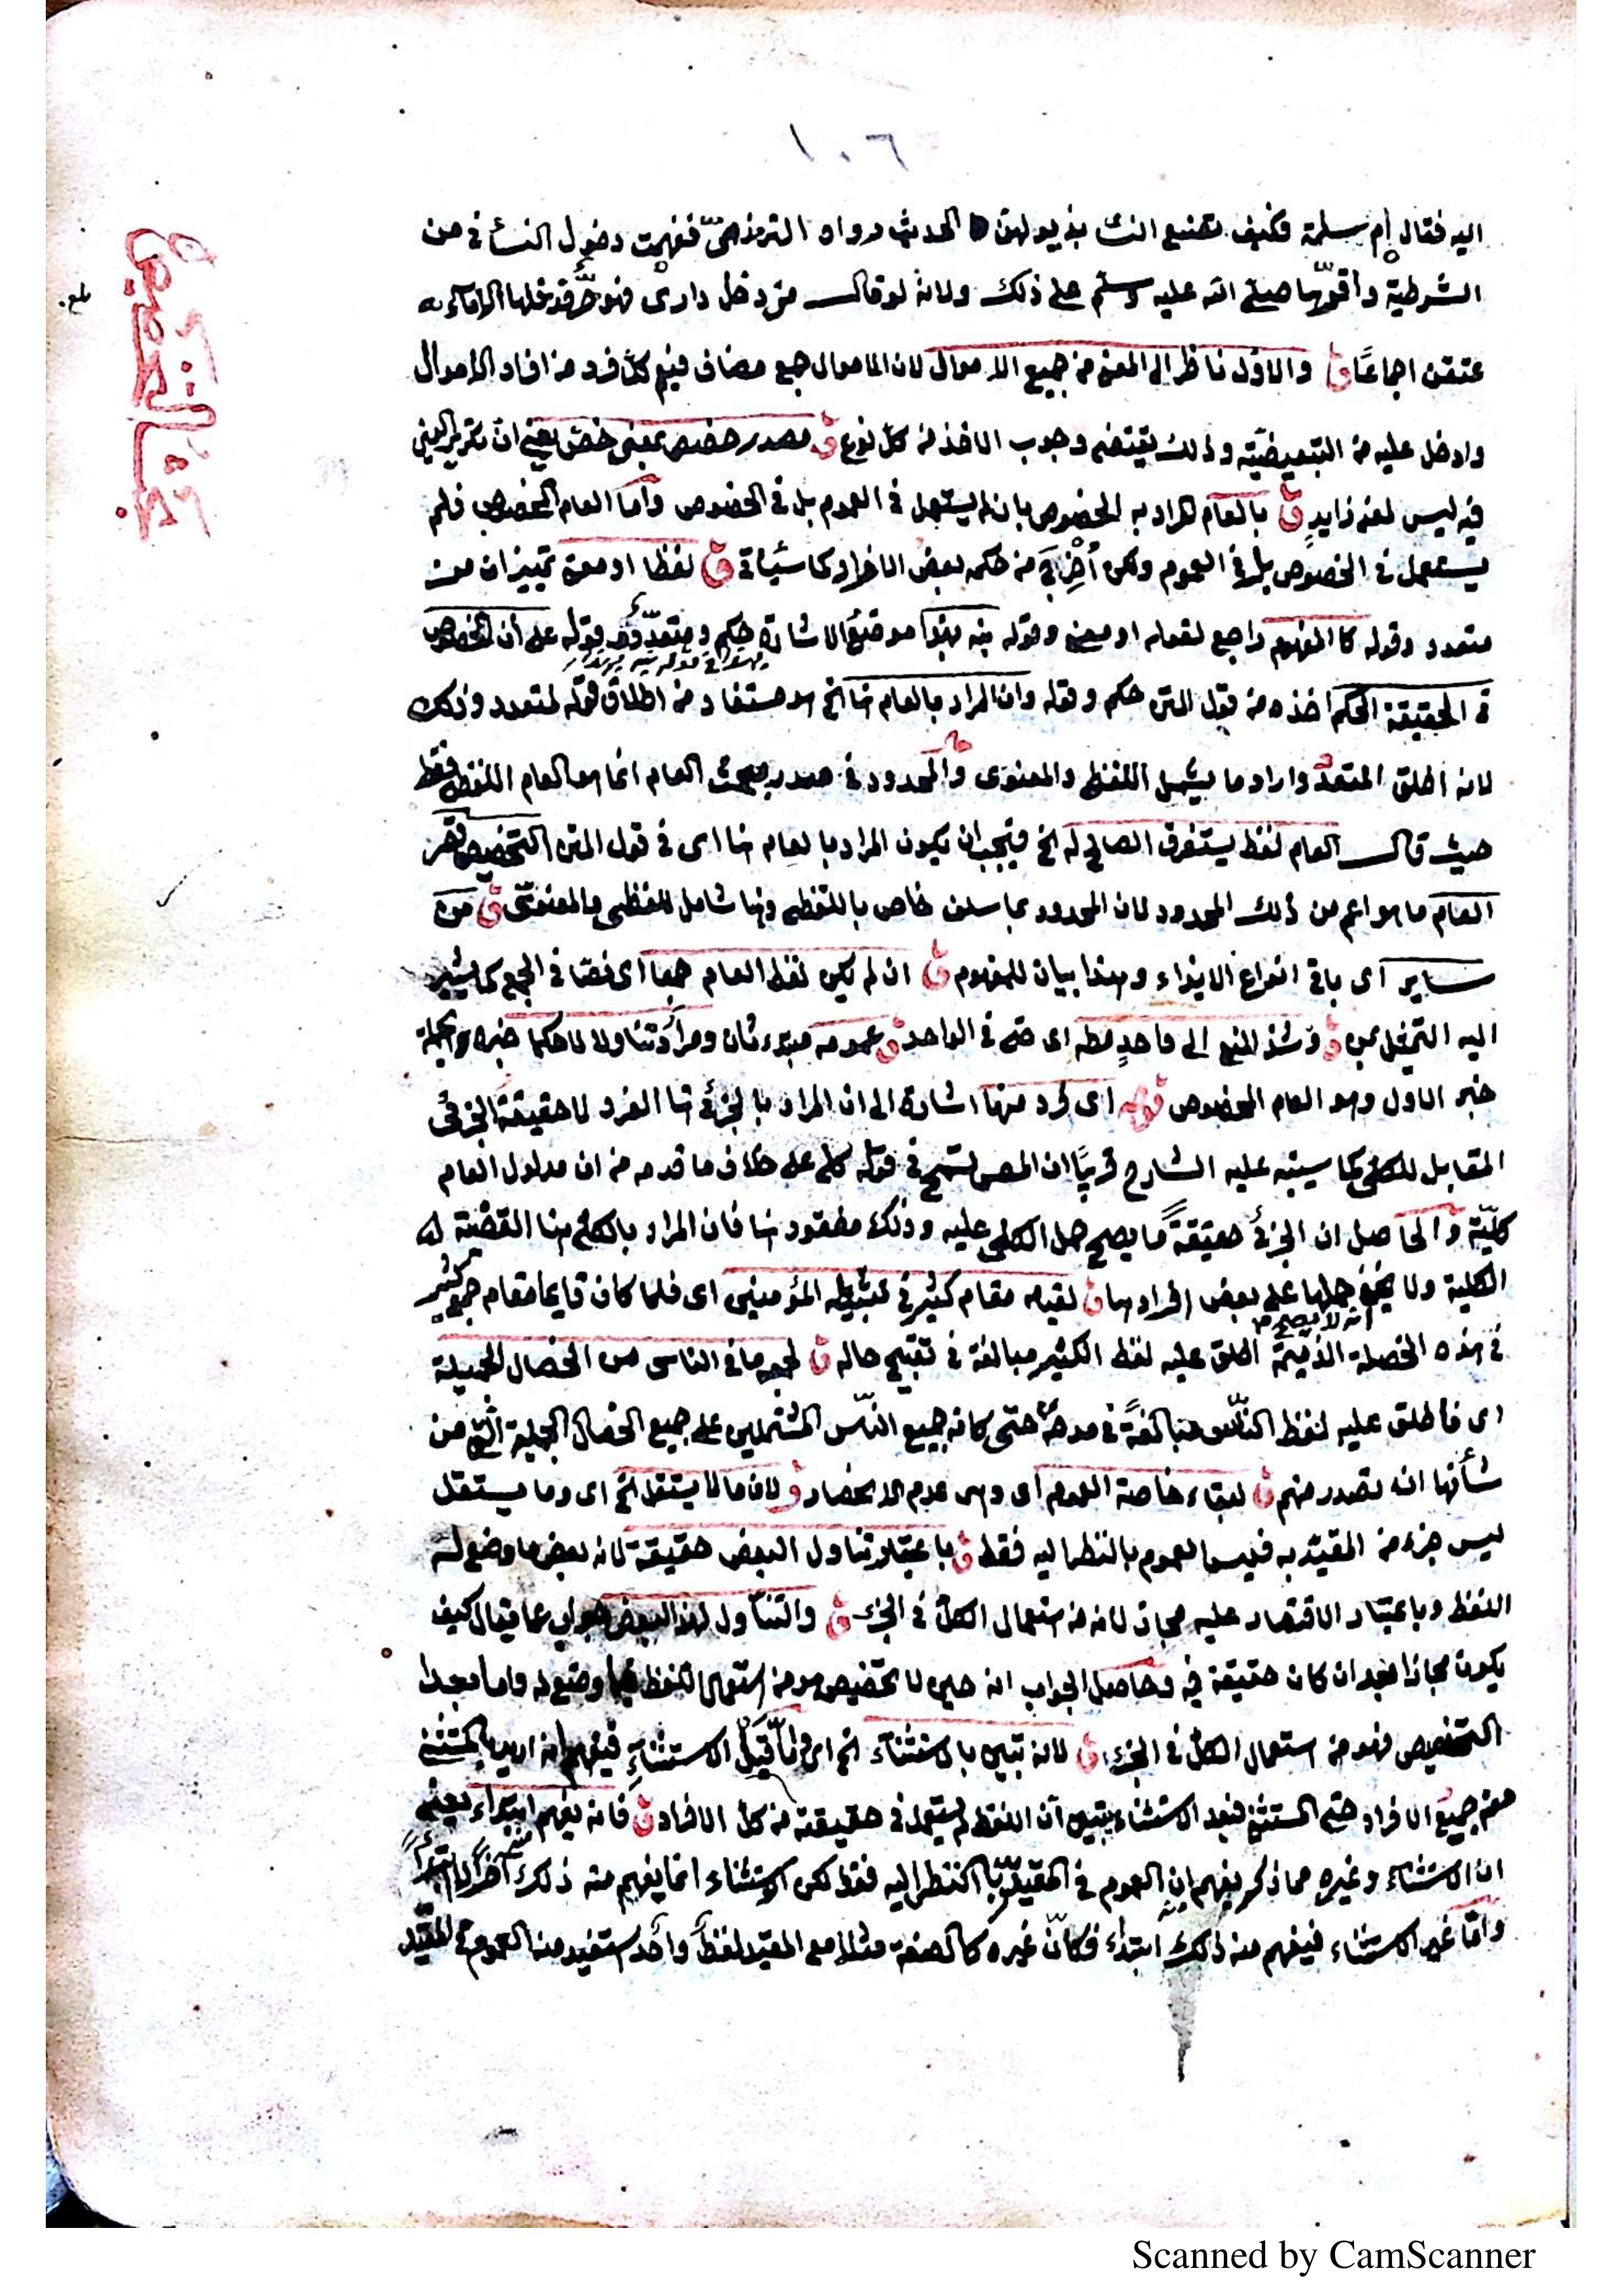 ١٠٦
اليه فقال ام سلمة فكيف تصنع النساء بذيولهن الحديث رواه الترمذي ففهمت دخول النساء في من
الشرطية واقرها صلى الله عليه وسلم على ذلك ولانه لو قال من دخل داري فهو حر فدخلها الاماء
عتقن اجماعا ق والاول ناظر الى المعنى من جميع الاموال لان الاموال جمع مضاف فيعم كل فرد من افراد الاموال
وادخل عليه من التبعيضية وذلك يقتضي وجوب الاخذ من كل نوع ق مصدر خصص بمعنى خص يعني ان تكرير العين
فيه ليس لمعنى زايد ق بالعام المراد به الخصوص بان لم يستعمل في العموم بل في الخصوص واما العام المخصوص فلم
يستعمل في الخصوص بل في العموم ولكن اخرج من حكمه بعض الافراد كما سيأتي ق لفظا او معنى تمييزان من
متعدد وقوله كالمفهوم راجع لقوله او معنى وقوله نبه بهذا موقع الاشارة حكم ومتعدد وقوله على ان المخصوص
في الحقيقة الحكم اخذه من قول المتن حكم وقوله وان المراد بالعام هنا الخ هو مستفاد من اطلاق قوله لمتعدد وذلك
لانه اطلق المتعدد واراد ما يشمل اللفظي والمعنوي والمحدود في صدر مبحث العام انما هو العام اللفظي فقط
حيث قال العام لفظ يستغرق الصالح له الخ فيجب ان يكون المراد بالعام هنا اى في قول المتن التخصيص قصر
العام ما هو اعم من ذلك المحدود لان المحدود بما سلف خاص باللفظي وهنا شامل للفظي والمعنوي ق من
ساير اى باقي انواع الايذاء وهذا بيان للمفهوم ق ان لم يكن لفظ العام جمعا اى نصا في الجمع كما يشير
اليه التمثيل بمن ق وشذ المنع الى واحد مطه اى حتى في الواحد ق عمومه مبتدء ثان ومراد تناولا لا حكما خبره والجملة
خبر الاول وهو العام المخصوص قوله اى فرد منها اشارة الى ان المراد بالجزئي هنا الفرد لا حقيقة الجزئي
المقابل للكلي كما سينبه عليه الشارح قريبا ان المصـ تسمح في قوله كلي على خلاف ما قدمه من ان مدلول العام
كلية والحاصل ان الجزئي حقيقة ما يصح حمل الكلي عليه وذلك مفقود هنا فان المراد بالكلي هنا القضية
الكلية ولا يخفى انه لا يصح حملها على بعض افرادها ق لقيامه مقام كثير في تثبيطه المؤمنين اى فلما كان قايما مقام جمع كثير
في هذه الخصلة الذميمة اطلق عليه لفظ الكثير مبالغة في تقبيح حاله ق لجمعه ما في الناس من الخصال الجميلة
اى فاطلق عليه لفظ الناس مبالغة في مدحه حتى كانه جميع الناس المشتملين على جميع الخصال الجميلة التي من
شأنها انه تصدر منهم ق لبقاء خاصة العموم اى وهى عدم الانحصار ق لان ما لا يستقل الخ اى وما يستقل
ليس جزء من المقيد به فليس العموم بالنظر اليه فقط ق باعتبار تناول البعض حقيقة لانه بعض ما وضع له
اللفظ وباعتبار الاقتصار عليه مجاز لانه من استعمال الكل في الجزء ق والتناول لهذا البعض جواب عما يقال كيف
يكون مجازا بعد ان كان حقيقة فيه وحاصل الجواب انه حين لا تخصيص هو من استعمال اللفظ فيما وضع له واما بعد
التخصيص فهو من استعمال الكل في الجزء ق لانه تبين بالاستثناء الخ اى واما قبل الاستثناء فيفهم انه اريد بالمستثنى
منه جميع الافراد حتى المستثنى فبعد الاستثناء يتبين ان اللفظ لم يستعمل في حقيقته من كل الافراد ق فانه يفهم ابتداء يعني
ان الاستثناء وغيره مما ذكر يفهم ان العموم في المقيد بالنظر اليه فقط لكن الاستثناء انما يفهم منه ذلك آخرا لا ابتداء
واما غير الاستثناء فيفهم منه ذلك ابتداء فكان غيره كالصفة مثلا مع المقيد لفظ واحد استفيد منه العموم في المقيد
بحث التخصيص
بلغ
Scanned by CamScanner